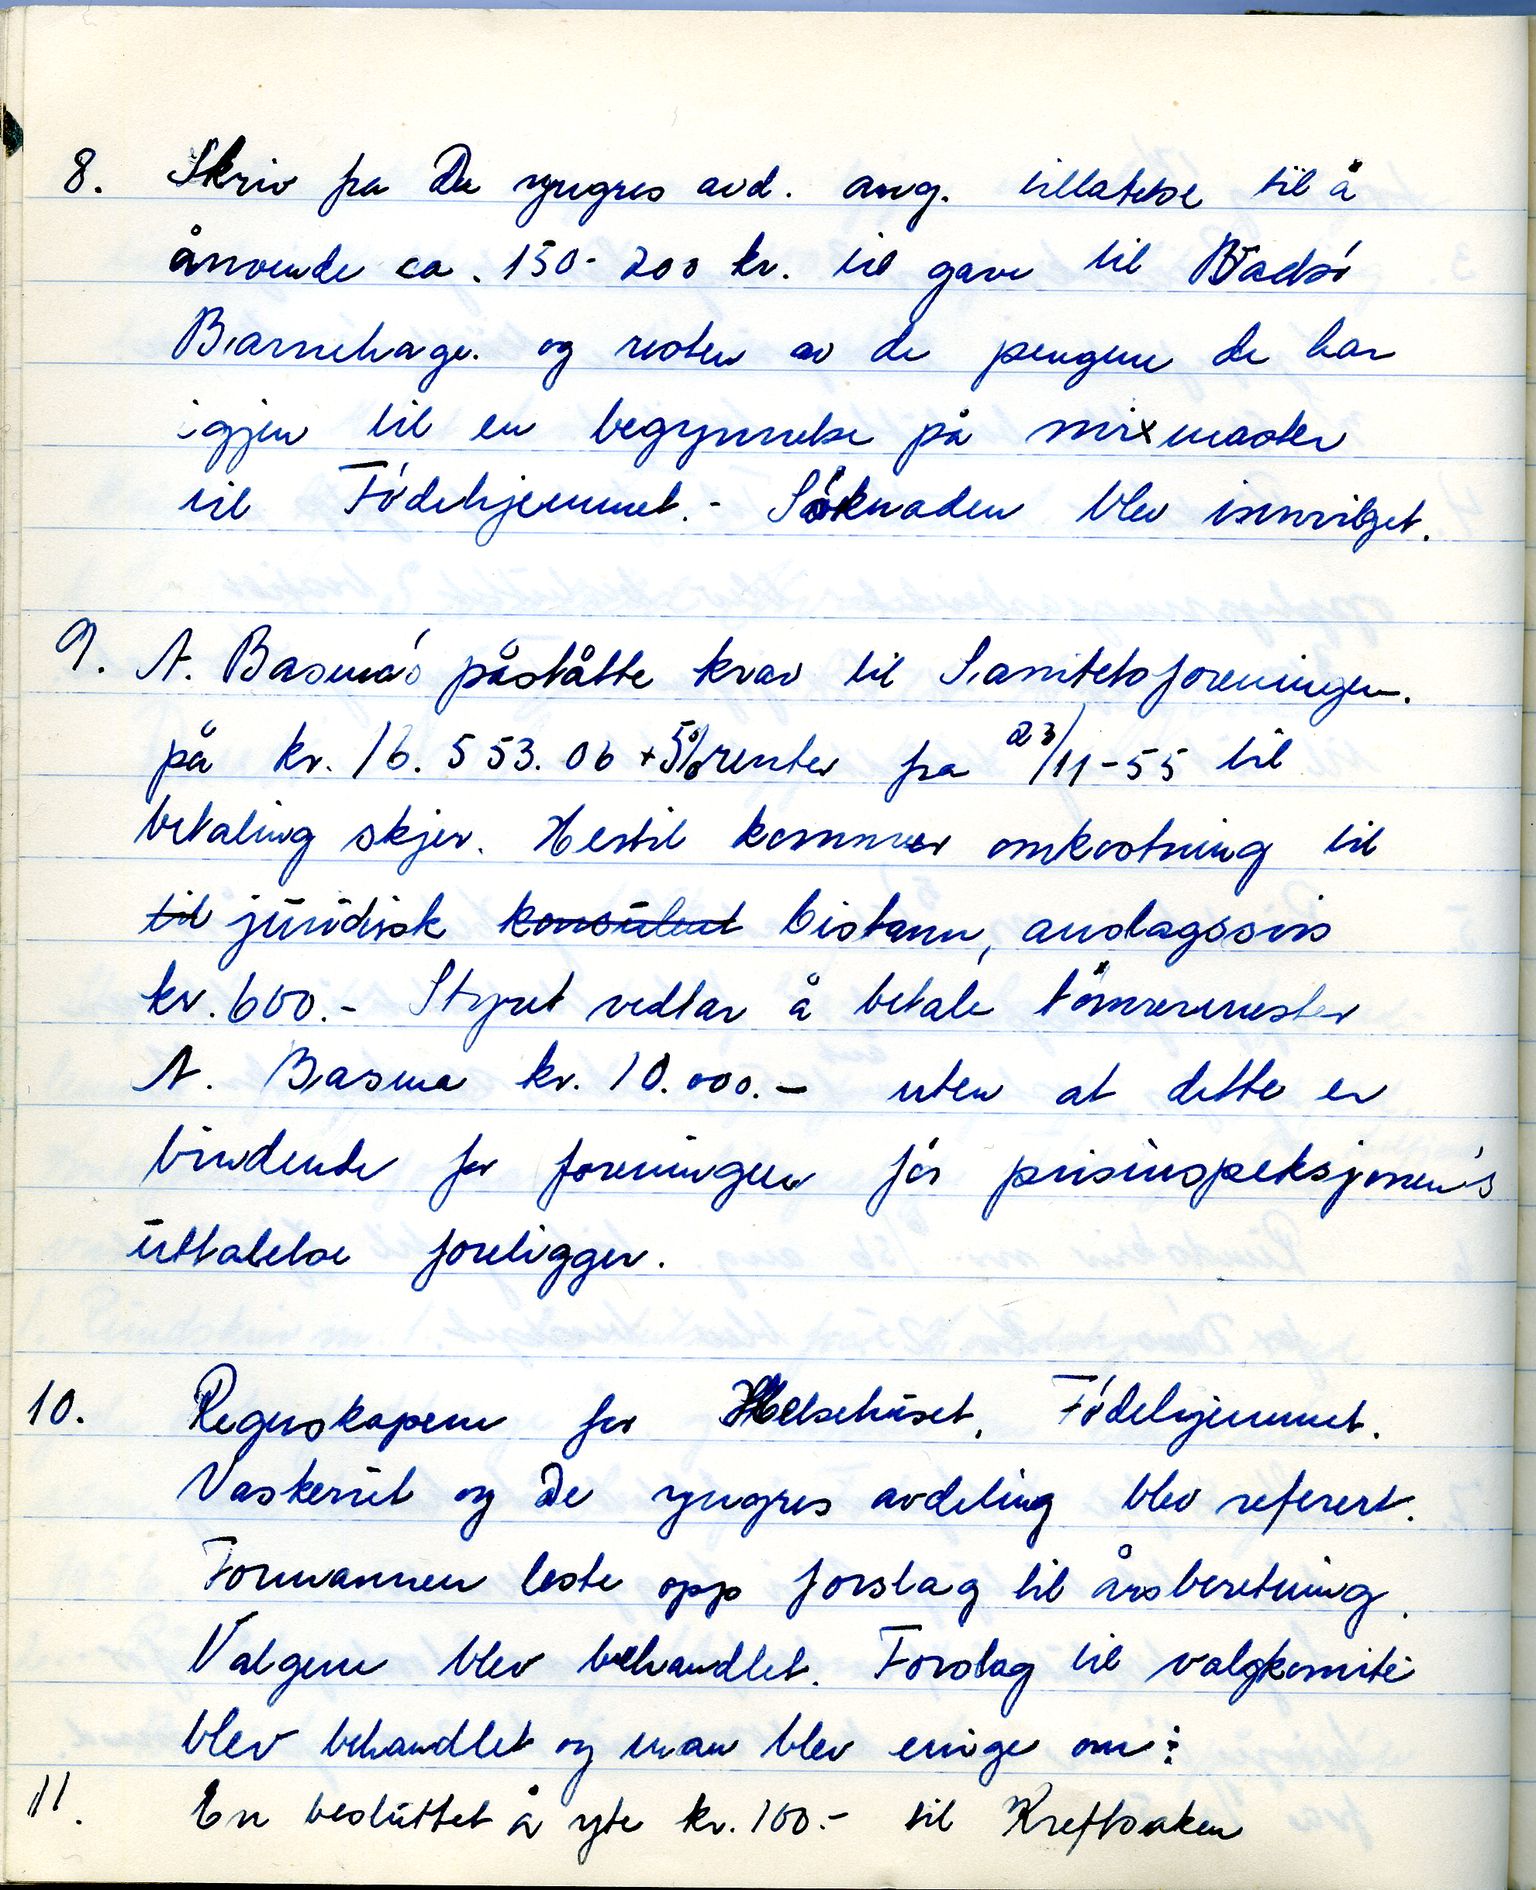 8. Skriv fra De yngres avd. ang. tillatelse til å
anvende ca. 150-200 kr. til gave til Vadsö
Barnehage. og resten av de pengene de har
igjen til en begynnelse på mixmaster
til Födehjemmet. - Söknaden blev innvilget.
9. A. Basma's påståtte krav til Sanitetsforeningen.
på kr. 16.553.06 + 5% renter fra 23/11-55 til
betaling skjer. Hertil kommer omkostning til
til juridisk konsulent bistann, anslagsvis
kr. 600.- Styret vedtar å betale tömrermester
A. Basma kr. 10.000.- uten at dette er
bindende for foreningen för prisinspeksjonen's
uttalelse foreligger.
10. Regnskapene for Helsehuset, Födehjemmet.
Vaskeriet og De yngres avdeling blev referert.
Formannen leste opp forslag til årsberetning.
Valgene blev behandlet. Forslag til valgkomité
blev behandlet og man blev enige om:
11. En besluttet å yte kr. 100.- til Kreftsaken